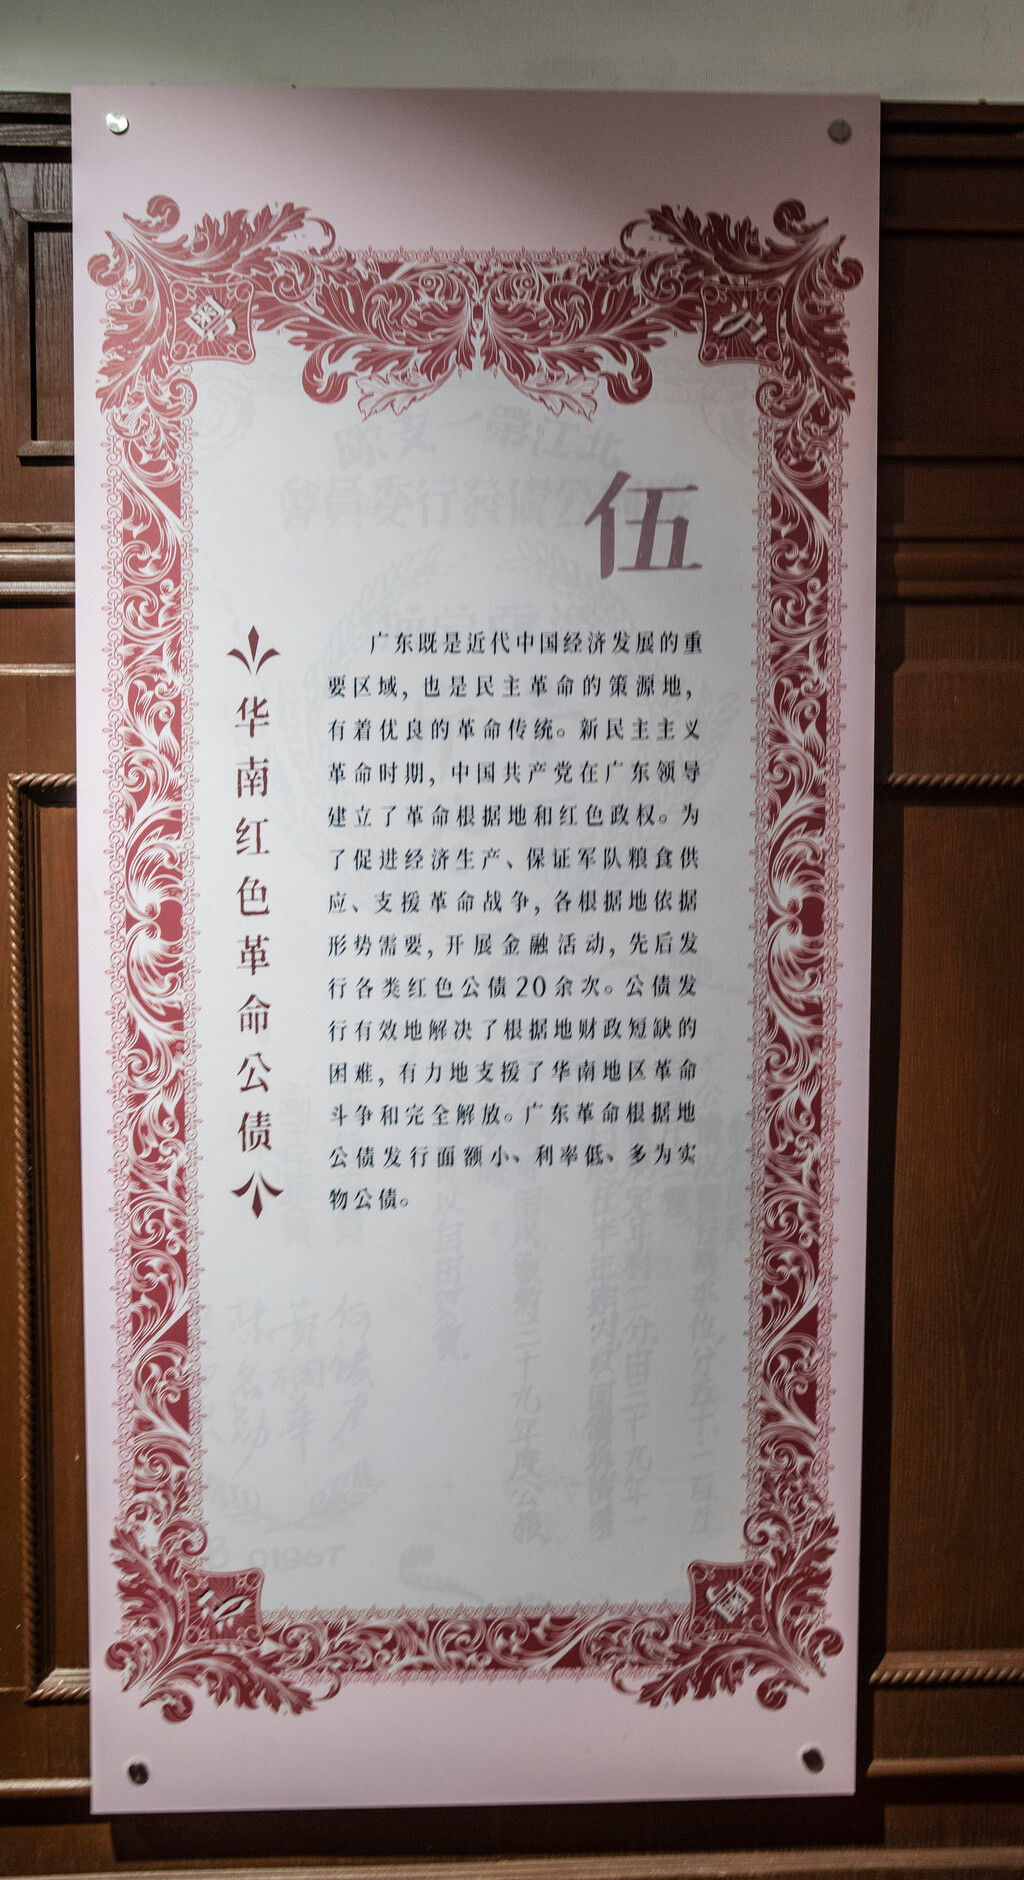 粤
沪
伍
华南红色革命公债
广东既是近代中国经济发展的重
要区域，也是民主革命的策源地，
有着优良的革命传统。新民主主义
革命时期，中国共产党在广东领导
建立了革命根据地和红色政权。为
了促进经济生产、保证军队粮食供
应、支援革命战争，各根据地依据
形势需要，开展金融活动，先后发
行各类红色公债20余次。公债发
行有效地解决了根据地财政短缺的
困难，有力地支援了华南地区革命
斗争和完全解放。广东革命根据地
公债发行面额小、利率低、多为实
物公债。
沪
粤